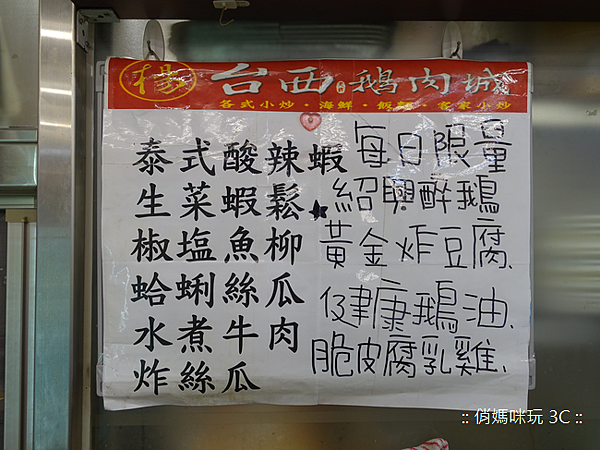 楊 台西 鵝肉城
各式小炒・海鮮・飯麵・客家小炒
泰式酸辣蝦
生菜蝦鬆
椒塩魚柳
蛤蜊絲瓜
水煮牛肉
炸絲瓜
每日限量
★紹興醉鵝
黃金炸豆腐
健康鵝油
脆皮腐乳雞
:: 俏媽咪玩 3C ::